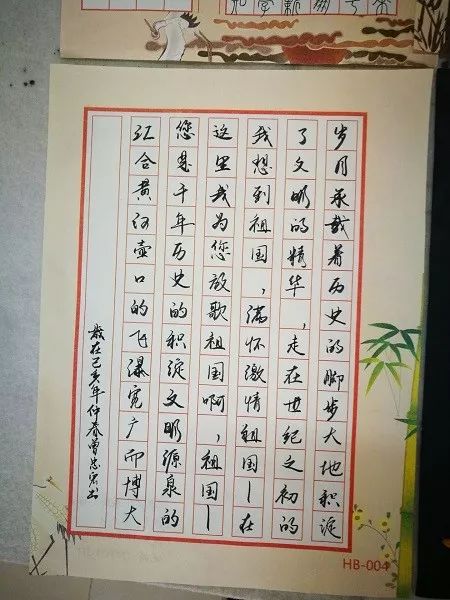 岁月承载着历史的脚步大地积淀
了文明的精华，走在世纪之初的
我想到祖国，满怀激情祖国！在
这里我为您放歌祖国啊，祖国！
您是千年历史的积淀文明源泉的
汇合黄河壶口的飞瀑宽广而博大
歲在己亥年仲春曾忠宏书
HB-004